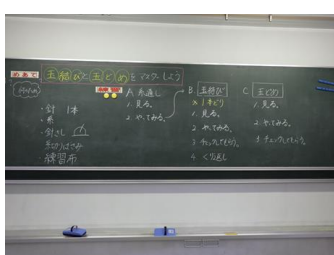 めあて 玉結びと玉どめをマスターしよう
・針 1本
・糸
・針さし
・糸切りばさみ
・練習布
A 糸通し
1. 見る。
2. やってみる。
B 玉結び
※1本どり
1. 見る。
2. やってみる。
3. チェックしてもらう。
4. くり返し
C 玉どめ
1. 見る。
2. やってみる。
3. チェックしてもらう。